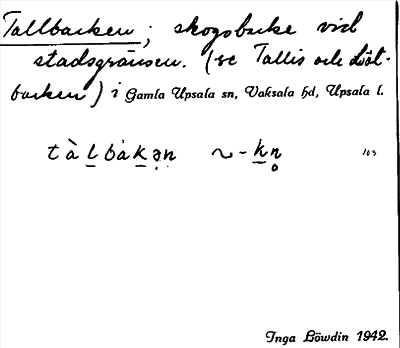 Tallbacken; skogsbacke vid
stadsgränsen. (se Tallis och Löt-
backen) i Gamla Upsala sn, Vaksala hd, Upsala l.
tàlbàkən ~-kn̥ 103
Inga Löwdin 1942.